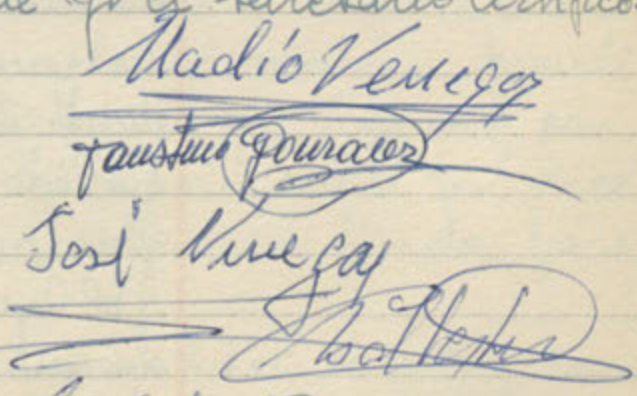 que yo el secretario certifico.
Eladio Venegas
Faustino González
José Venegas